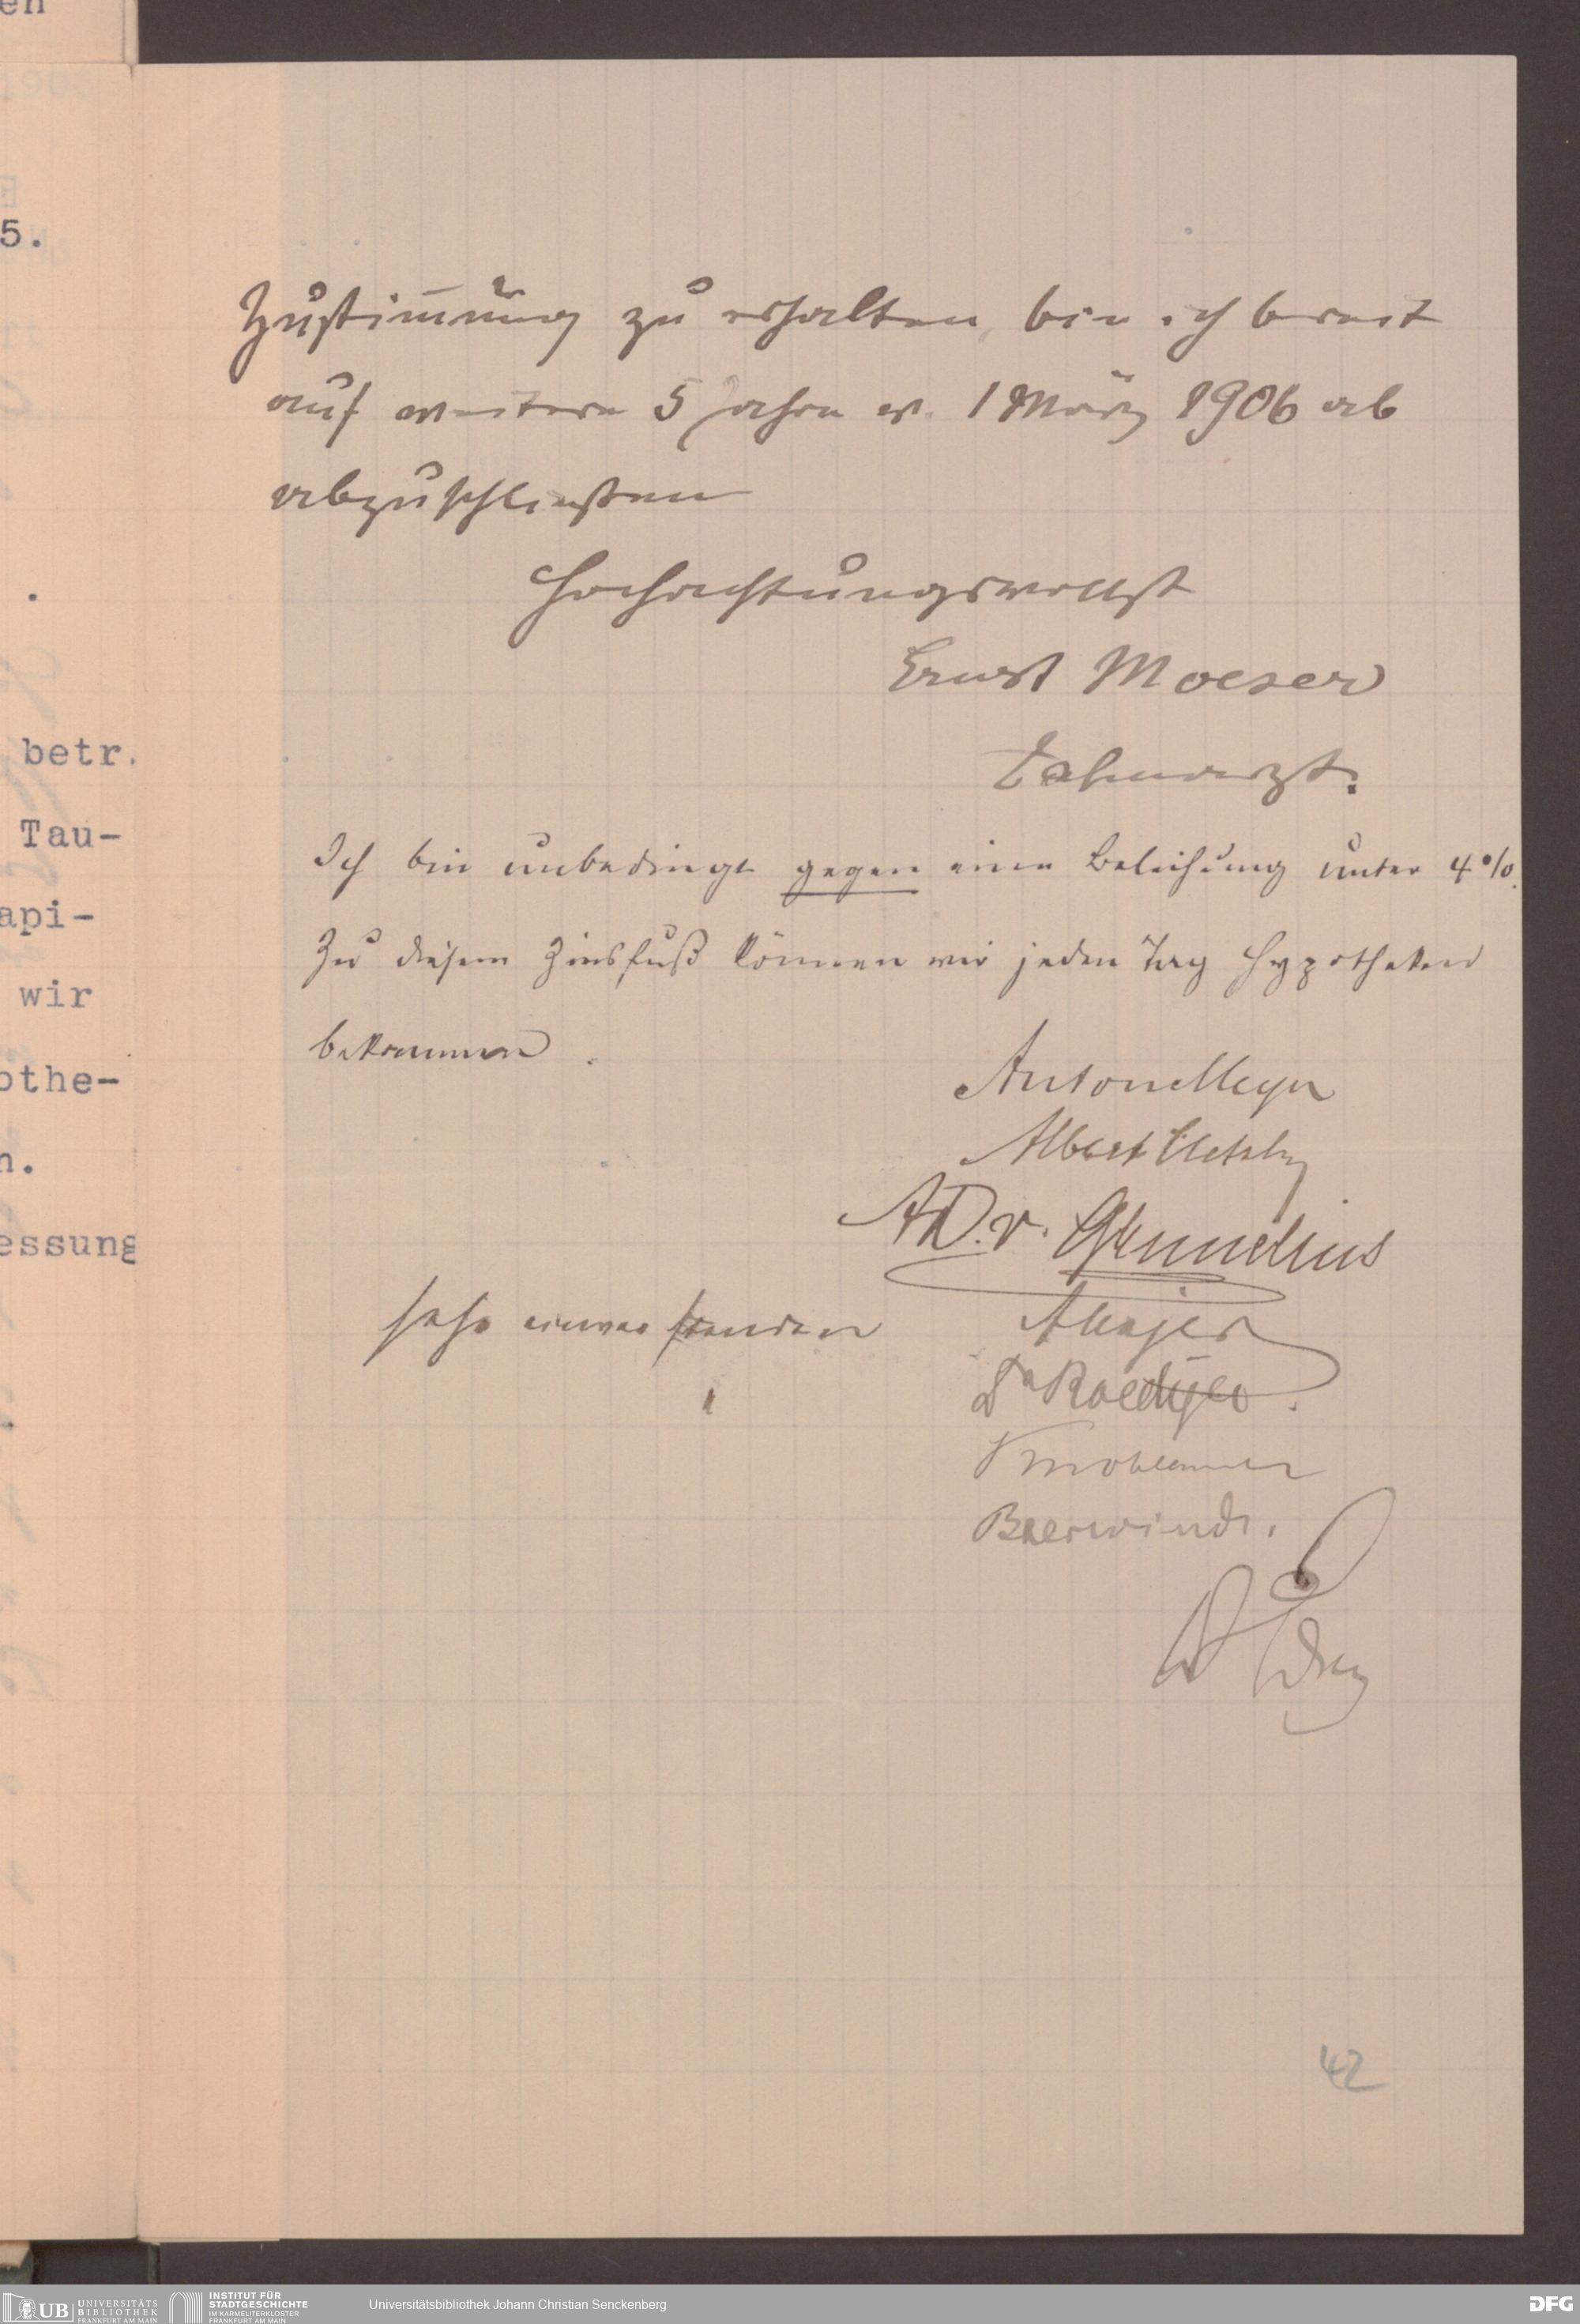 en
5.
.
betr.
Tau-
api-
wir
othe-
n.
essung
Zustimmung zu erhalten, bin ich bereit
auf weitere 5 Jahre v. 1 März 1906 ab
abzuschließen
Hochachtungsvollst
Ernst Moeser
Zahnarzt.
Ich bin unbedingt gegen eine Beleihung unter 4%.
Zu diesem Zinsfuß können wir jeden Tag Hypotheken
bekommen.
Anton Meyer
Albert Metzler
A D. v. Grunelius
sehr einverstanden
A Meyer
Dr Roediger.
Knoblauch
Baerwindt.
42
UB UNIVERSITÄTS
BIBLIOTHEK
FRANKFURT AM MAIN
INSTITUT FÜR
STADTGESCHICHTE
IM KARMELITERKLOSTER
FRANKFURT AM MAIN
Universitätsbibliothek Johann Christian Senckenberg
DFG